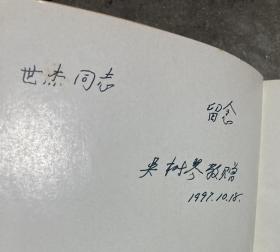 世杰同志
留念
吴树琴敬赠
1997.10.18.